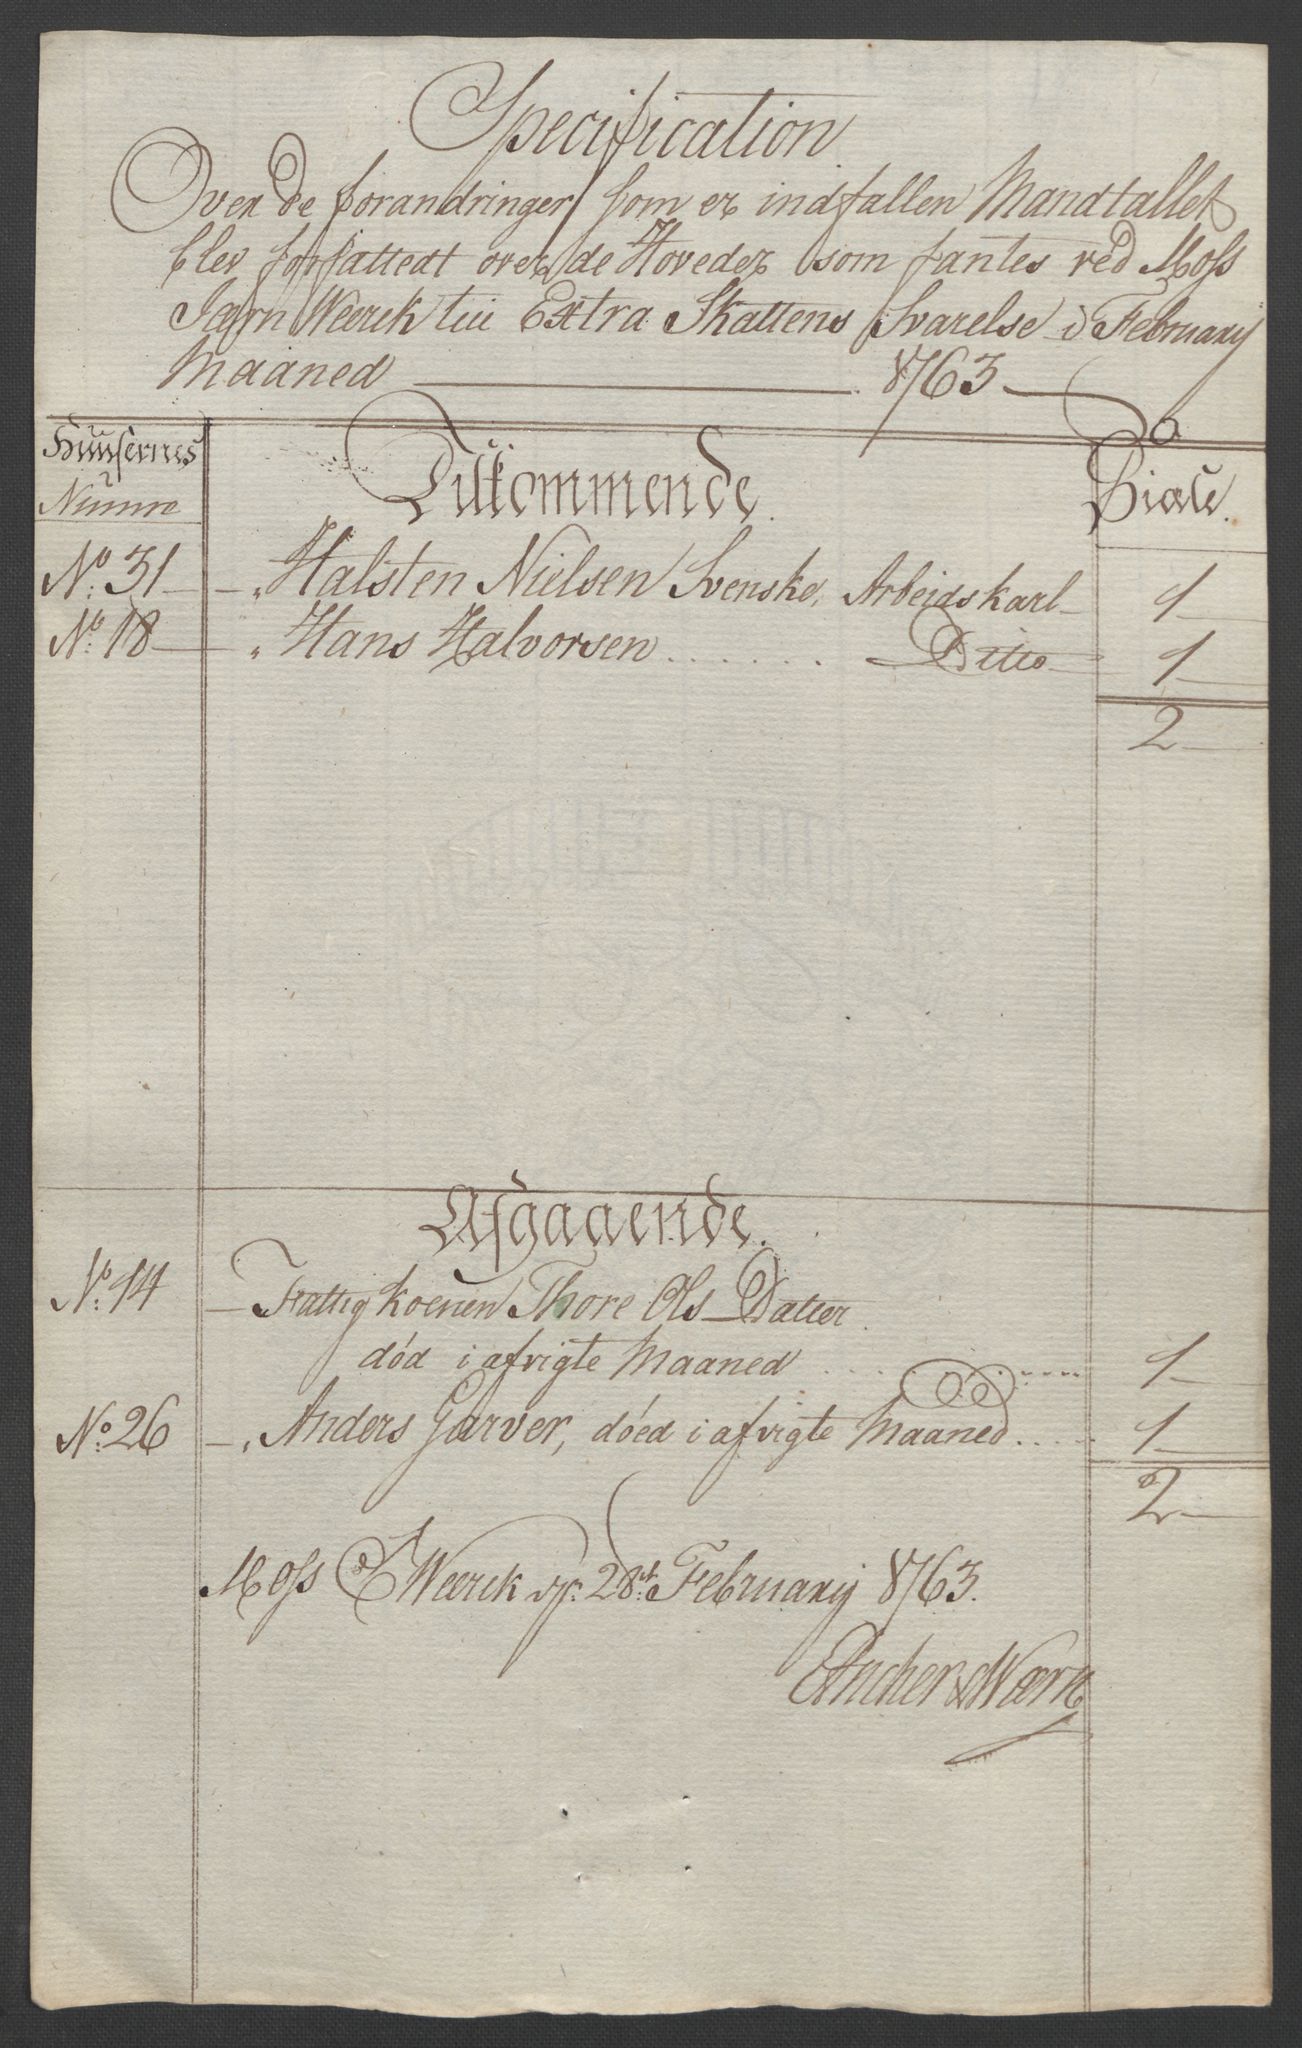 Specification
Over de forandringer som er indfallen Mandtallet
blev forfattedt over de Hoveder som fantes ved Moss
Jærn Weerck till Extra Skattens Svarelse i February
Maaned 1763
Huusernes
Numre
Tilkommende.
Siæle.
No. 31 Halsten Nielsen Svenske, Arbeidskarl 1
No. 18 Hans Halvorsen ....... Ditto 1
2
Afgaaende.
No. 14 Fattig Koenen Thore Ols Datter
død i afvigte Maaned ....... 1
No. 26 Anders Garver, døed i afvigte Maaned .... 1
2
Moss J Weerck 28de February 1763.
Ancher & Wærn